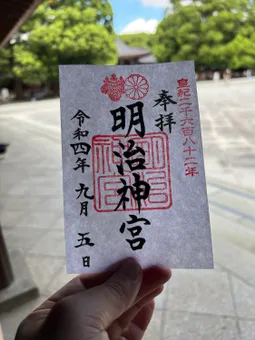 皇紀二千六百八十二年
奉拝
明治神宮
令和四年九月五日